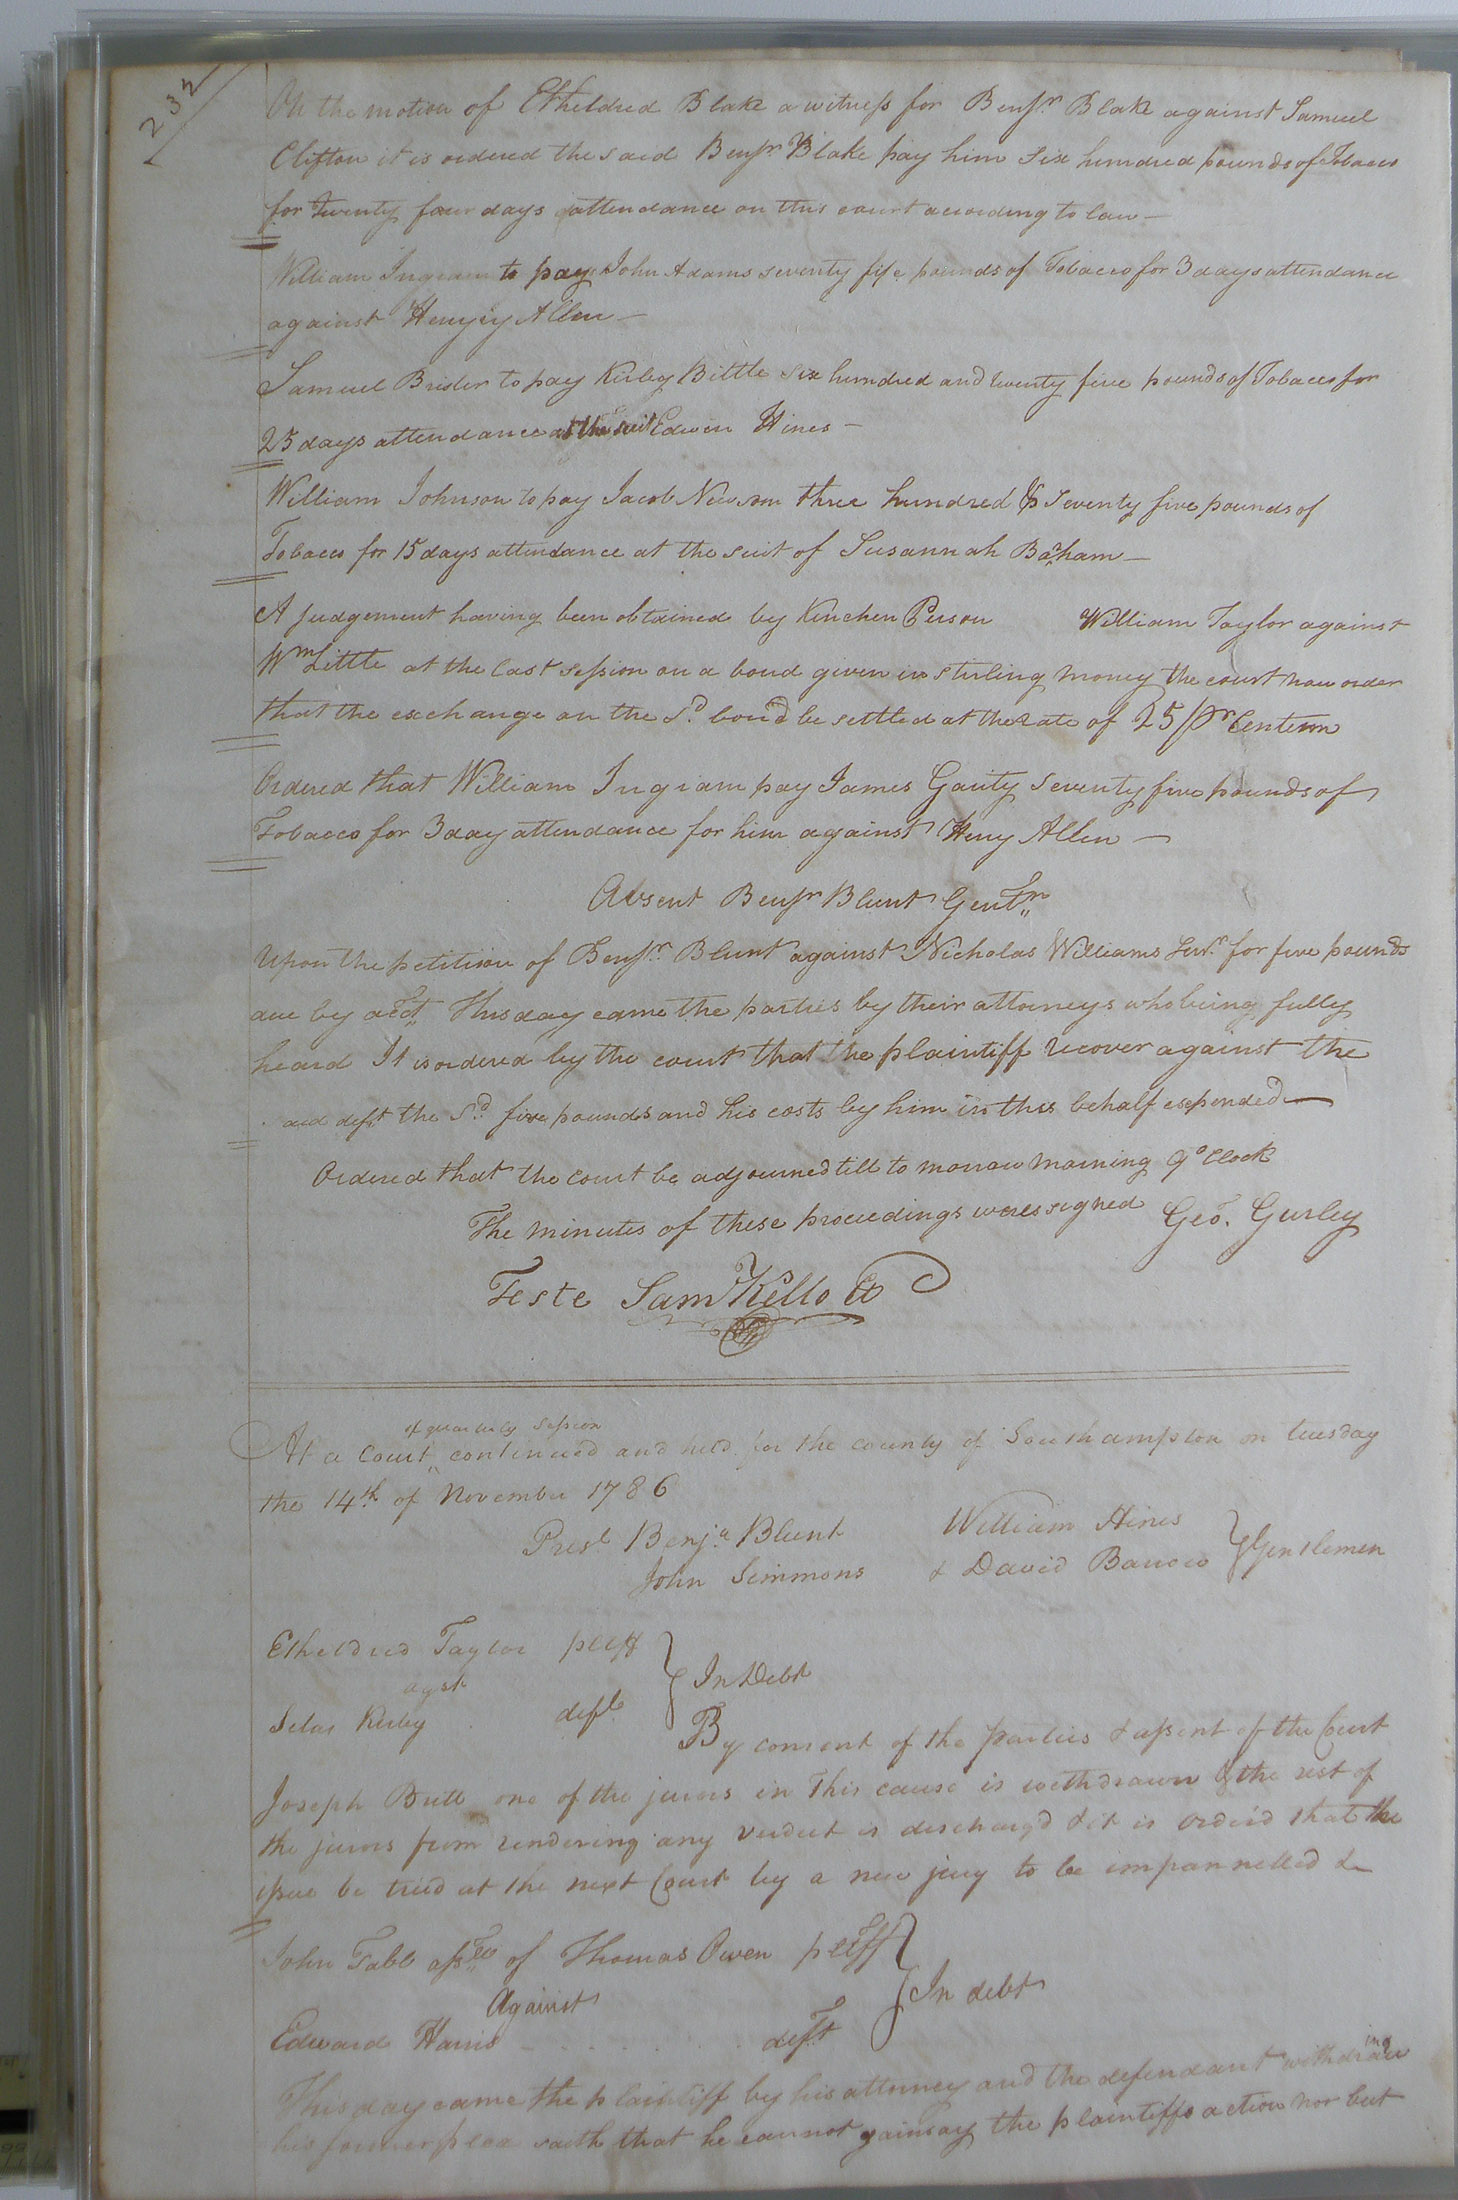 232
On the motion of Etheldred Blake a witness for Benjn. Blake against Samuel
Clifton it is ordered the said Benjn. Blake pay him six hundred pounds of Tobacco
for twenty four days attendance on this court according to law —
William Ingram to pay John Adams seventy five pounds of Tobacco for 3 days attendance
against Henry Allen —
Samuel Brister to pay Kirby Bittle six hundred and twenty five pounds of Tobacco for
25 days attendance at the suit Edwin Hines —
William Johnson to pay Jacob Newsom three hundred & seventy five pounds of
Tobacco for 15 days attendance at the suit of Susannah Barham —
A judgement having been obtained by Kinchen Person William Taylor against
Wm Little at the last session on a bond given in sterling money the court now order
that the exchange on the Sd. bond be settled at the rate of 25 Pr Centum
Ordered that William Ingram pay James Garity seventy five pounds of
Tobacco for 3 day attendance for him against Henry Allen —
Absent Benjn Blunt Gentn
Upon the petition of Benjn. Blunt against Nicholas Williams for five pounds
due by acct. This day came the parties by their attorneys who being fully
heard It is ordered by the court that the plaintiff recover against the
said deft the Sd. five pounds and his costs by him in this behalf expended —
Ordered that the court be adjourned till to morrow morning 9 oClock
The minutes of these proceedings were signed Geo. Gurley
Teste Sam Kello Ct
of quarterly Session
At a Court continued and held for the county of Southampton on tuesday
the 14th of November 1786
Prest. Benja Blunt William Hines
John Simmons & David Barrow } Gentlemen
Etheldred Taylor pltff
agst } In Debt
Silas Kirby deft.
By consent of the parties & assent of the Court
Joseph Britt one of the jurors in this cause is withdrawn & the rest of
the jurors from rendering any verdict is discharg'd & it is order'd that the
issue be tried at the next Court by a new jury to be impannelled &
John Tabb assee of Thomas Owen pltff
Against } In debt
Edward Harris - . . . . . deft
ing
This day came the plaintiff by his attorney and the defendant withdraw
his former plea saith that he cannot gainsay the plaintiffs action nor but